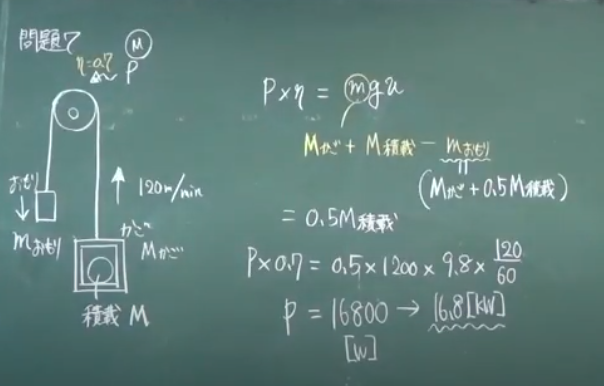 問題7
M
η=0.7
P
おもり
mおもり
120m/min
かご
Mかご
積載 M
P×η = mgu
Mかご + M積載 − mおもり
(Mかご + 0.5M積載)
= 0.5M積載
P×0.7 = 0.5×1200×9.8× 120/60
P = 16800 → 16.8[kW]
[W]